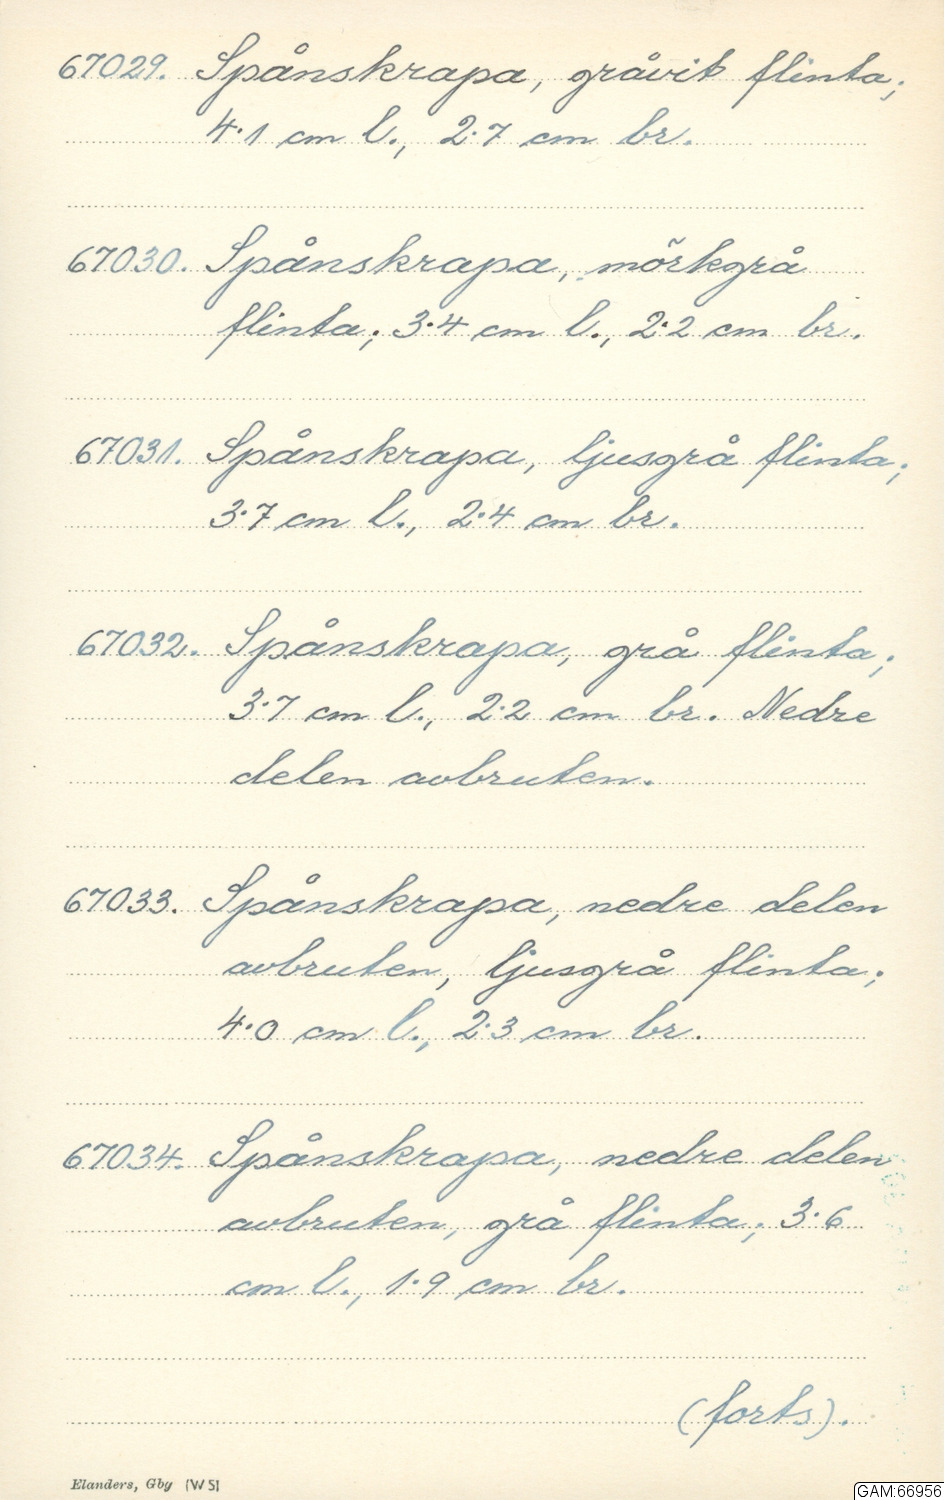 67029. Spånskrapa, gråvit flinta;
4·1 cm l., 2·7 cm br.
67030. Spånskrapa, mörkgrå
flinta; 3·4 cm l., 2·2 cm br.
67031. Spånskrapa, ljusgrå flinta;
3·7 cm l., 2·4 cm br.
67032. Spånskrapa, grå flinta;
3·7 cm l., 2·2 cm br. Nedre
delen avbruten.
67033. Spånskrapa, nedre delen
avbruten, ljusgrå flinta;
4·0 cm l., 2·3 cm br.
67034. Spånskrapa, nedre delen
avbruten, grå flinta; 3·6
cm l., 1·9 cm br.
(forts).
Elanders, Gby (W5)
GAM:66956